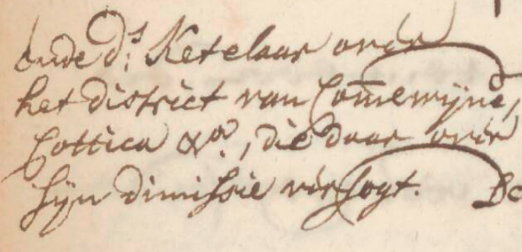 ende d:s Ketelaar over
het district van Com̄ewijne,
Cottica &a, die daar over
sijn dimissie versogt. De